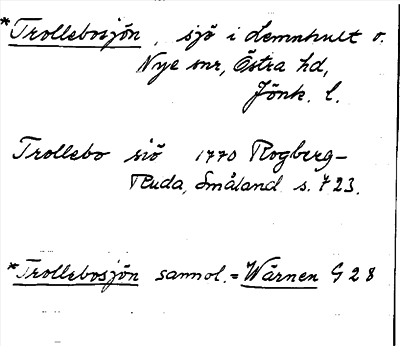 *Trollebosjön, sjö i Lemnhult o.
Nye snr, Östra hd,
Jönk. l.
Trollebo siö 1770 Rogberg-
Ruda, Småland s. 723.
*Trollebosjön sannol. = Wärnen G 28